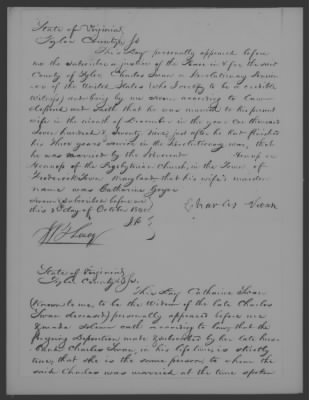 State of Virginia
Tyler County Js
This day personally appeared before
me the subscriber a justice of the Peace in & for the said
County of Tyler Charles Swan a Revolutionary
of the United States (who I certify to be a credible
witness) and being by me sworn according to Law
and saith that he was married to his present
wife in the month of December in the year one thousand
seven hundred & seventy nine, just after he had finished
his three years service in the Revolutionary war, that
he was married by the Reverend
of the Presbyterian Church in the Town of
Frederick Town Maryland that his wife's maiden
name was Catharine
Sworn & Subscribed before me
Charles Swan
this day of October
State of Virginia
Tyler County Js.
This day Catharine Swan
(Known to me to be the Widow of the late Charles
Swan deceased) personally appeared before me
& made solemn oath according to law, that the
foregoing deposition made & subscribed by her late
Charles Swan, in his lifetime, is strictly
true, that she is the same person to whom the
said Charles was married at the time spoken